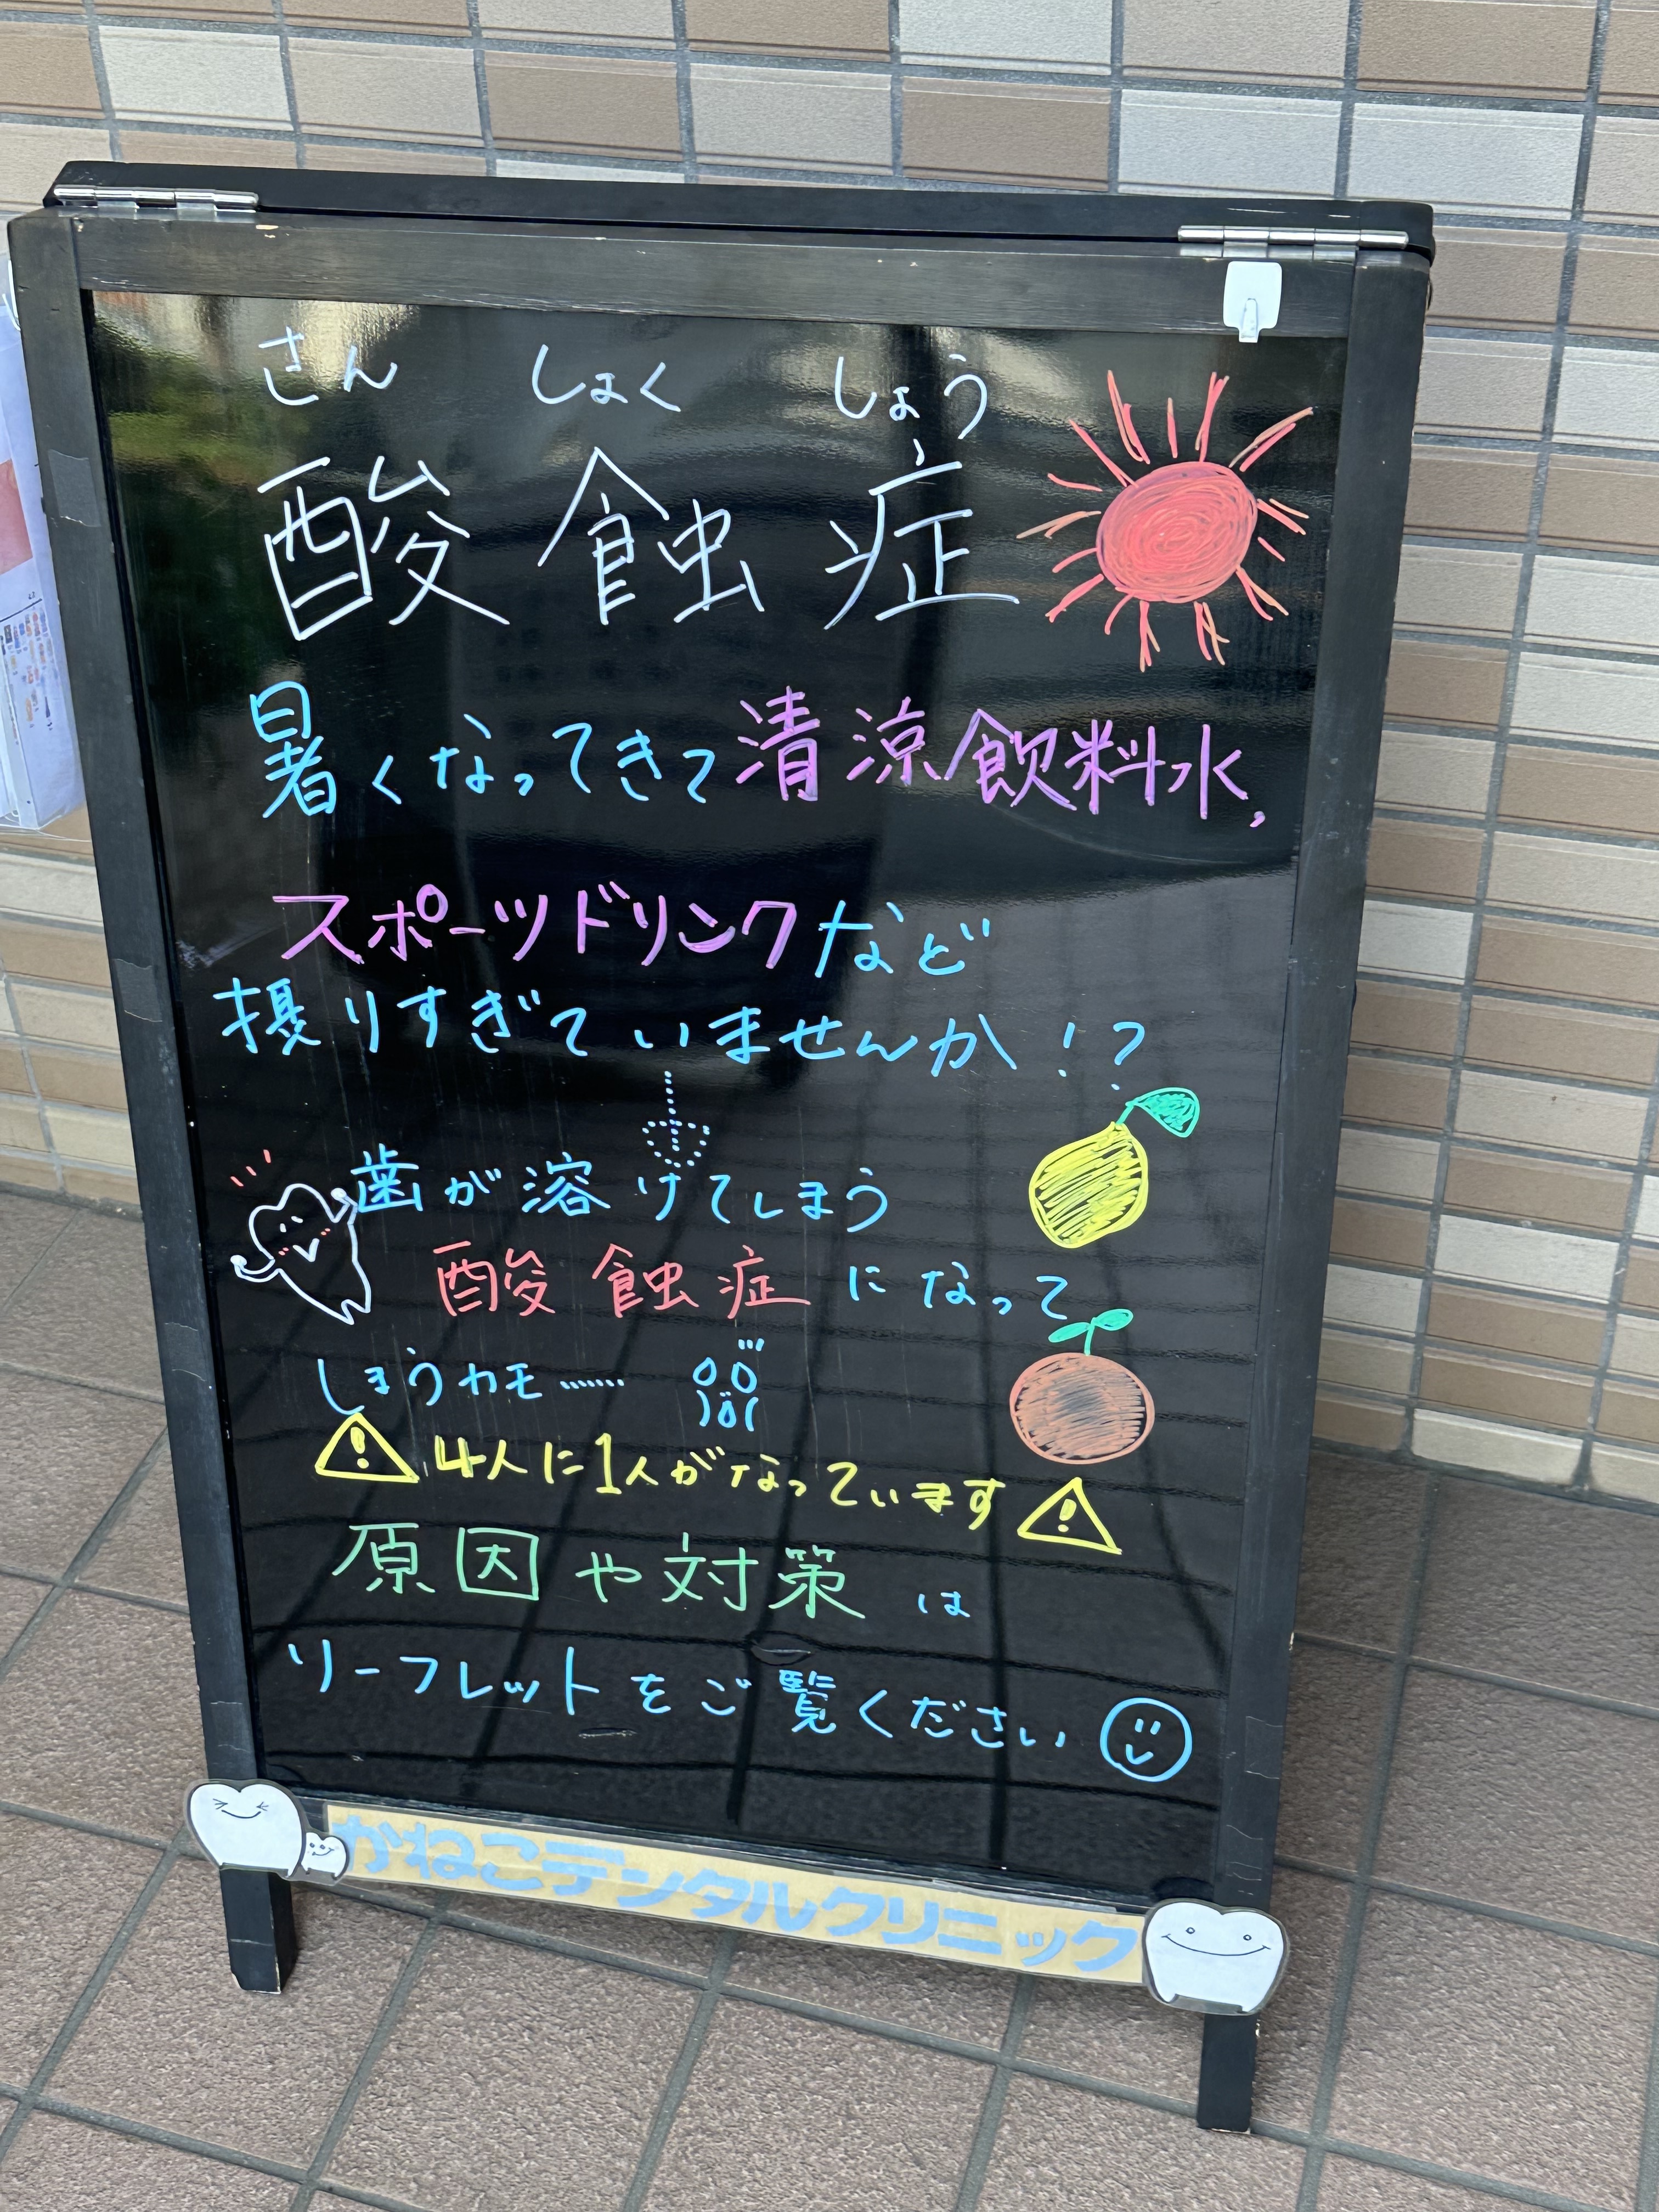 さん しょく しょう
酸蝕症
暑くなってきて清涼飲料水,
スポーツドリンクなど
摂りすぎていませんか!?
歯が溶けてしまう
酸蝕症になって
しまうカモ……
4人に1人がなっています
原因や対策は
リーフレットをご覧ください
かねこデンタルクリニック